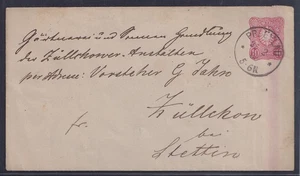 Gärtnerei und Samen Handlung
der Züllchower-Anstalten
per Adress: Vorsteher G Jahn
Züllchow
bei
Stettin
fr.